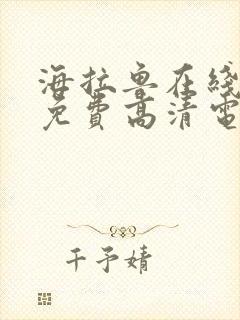 海拉鲁在线
免费高清电
千予婧